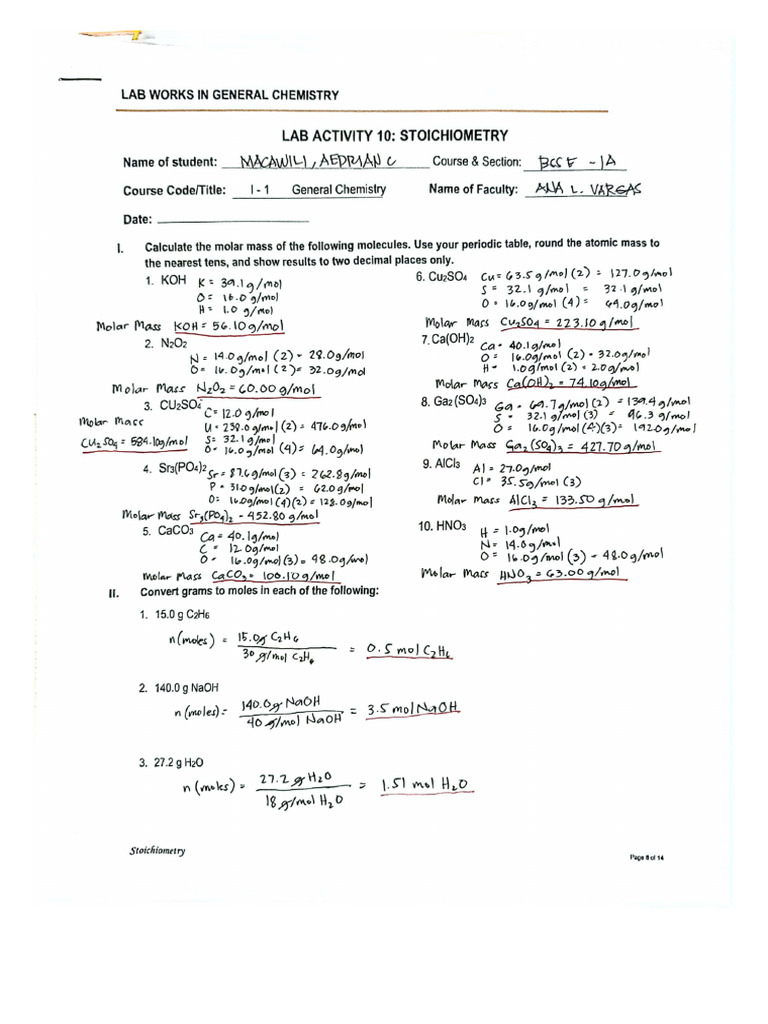 LAB WORKS IN GENERAL CHEMISTRY
LAB ACTIVITY 10: STOICHIOMETRY
Name of student: MACAWILI, AEDRIAN C Course & Section: BCSE - 1A
Course Code/Title: I - 1 General Chemistry Name of Faculty: ANA L. VARGAS
Date:
I. Calculate the molar mass of the following molecules. Use your periodic table, round the atomic mass to
the nearest tens, and show results to two decimal places only.
1. KOH K = 39.1 g/mol
O = 16.0 g/mol
H = 1.0 g/mol
Molar Mass KOH = 56.10 g/mol
2. N2O2
N = 14.0 g/mol (2) = 28.0 g/mol
O = 16.0 g/mol (2) = 32.0 g/mol
Molar Mass N2O2 = 60.00 g/mol
3. CU2SO4 C = 12.0 g/mol
U = 238.0 g/mol (2) = 476.0 g/mol
S = 32.1 g/mol
O = 16.0 g/mol (4) = 64.0 g/mol
Molar Mass
CU2SO4 = 584.10 g/mol
4. Sr3(PO4)2 Sr = 87.6 g/mol (3) = 262.8 g/mol
P = 31.0 g/mol (2) = 62.0 g/mol
O = 16.0 g/mol (4)(2) = 128.0 g/mol
Molar Mass Sr3(PO4)2 = 452.80 g/mol
5. CaCO3 Ca = 40.1 g/mol
C = 12.0 g/mol
O = 16.0 g/mol (3) = 48.0 g/mol
Molar Mass CaCO3 = 100.10 g/mol
6. Cu2SO4 Cu = 63.5 g/mol (2) = 127.0 g/mol
S = 32.1 g/mol = 32.1 g/mol
O = 16.0 g/mol (4) = 64.0 g/mol
Molar Mass Cu2SO4 = 223.10 g/mol
7. Ca(OH)2 Ca = 40.1 g/mol
O = 16.0 g/mol (2) = 32.0 g/mol
H = 1.0 g/mol (2) = 2.0 g/mol
Molar Mass Ca(OH)2 = 74.10 g/mol
8. Ga2(SO4)3 Ga = 69.7 g/mol (2) = 139.4 g/mol
S = 32.1 g/mol (3) = 96.3 g/mol
O = 16.0 g/mol (4)(3) = 192.0 g/mol
Molar Mass Ga2(SO4)3 = 427.70 g/mol
9. AlCl3 Al = 27.0 g/mol
Cl = 35.5 g/mol (3)
Molar Mass AlCl3 = 133.50 g/mol
10. HNO3 H = 1.0 g/mol
N = 14.0 g/mol
O = 16.0 g/mol (3) = 48.0 g/mol
Molar Mass HNO3 = 63.00 g/mol
II. Convert grams to moles in each of the following:
1. 15.0 g C2H6
n (moles) = 15.0 g C2H6 / 30 g/mol C2H6 = 0.5 mol C2H6
2. 140.0 g NaOH
n (moles) = 140.0 g NaOH / 40 g/mol NaOH = 3.5 mol NaOH
3. 27.2 g H2O
n (moles) = 27.2 g H2O / 18 g/mol H2O = 1.51 mol H2O
Stoichiometry
Page 8 of 14